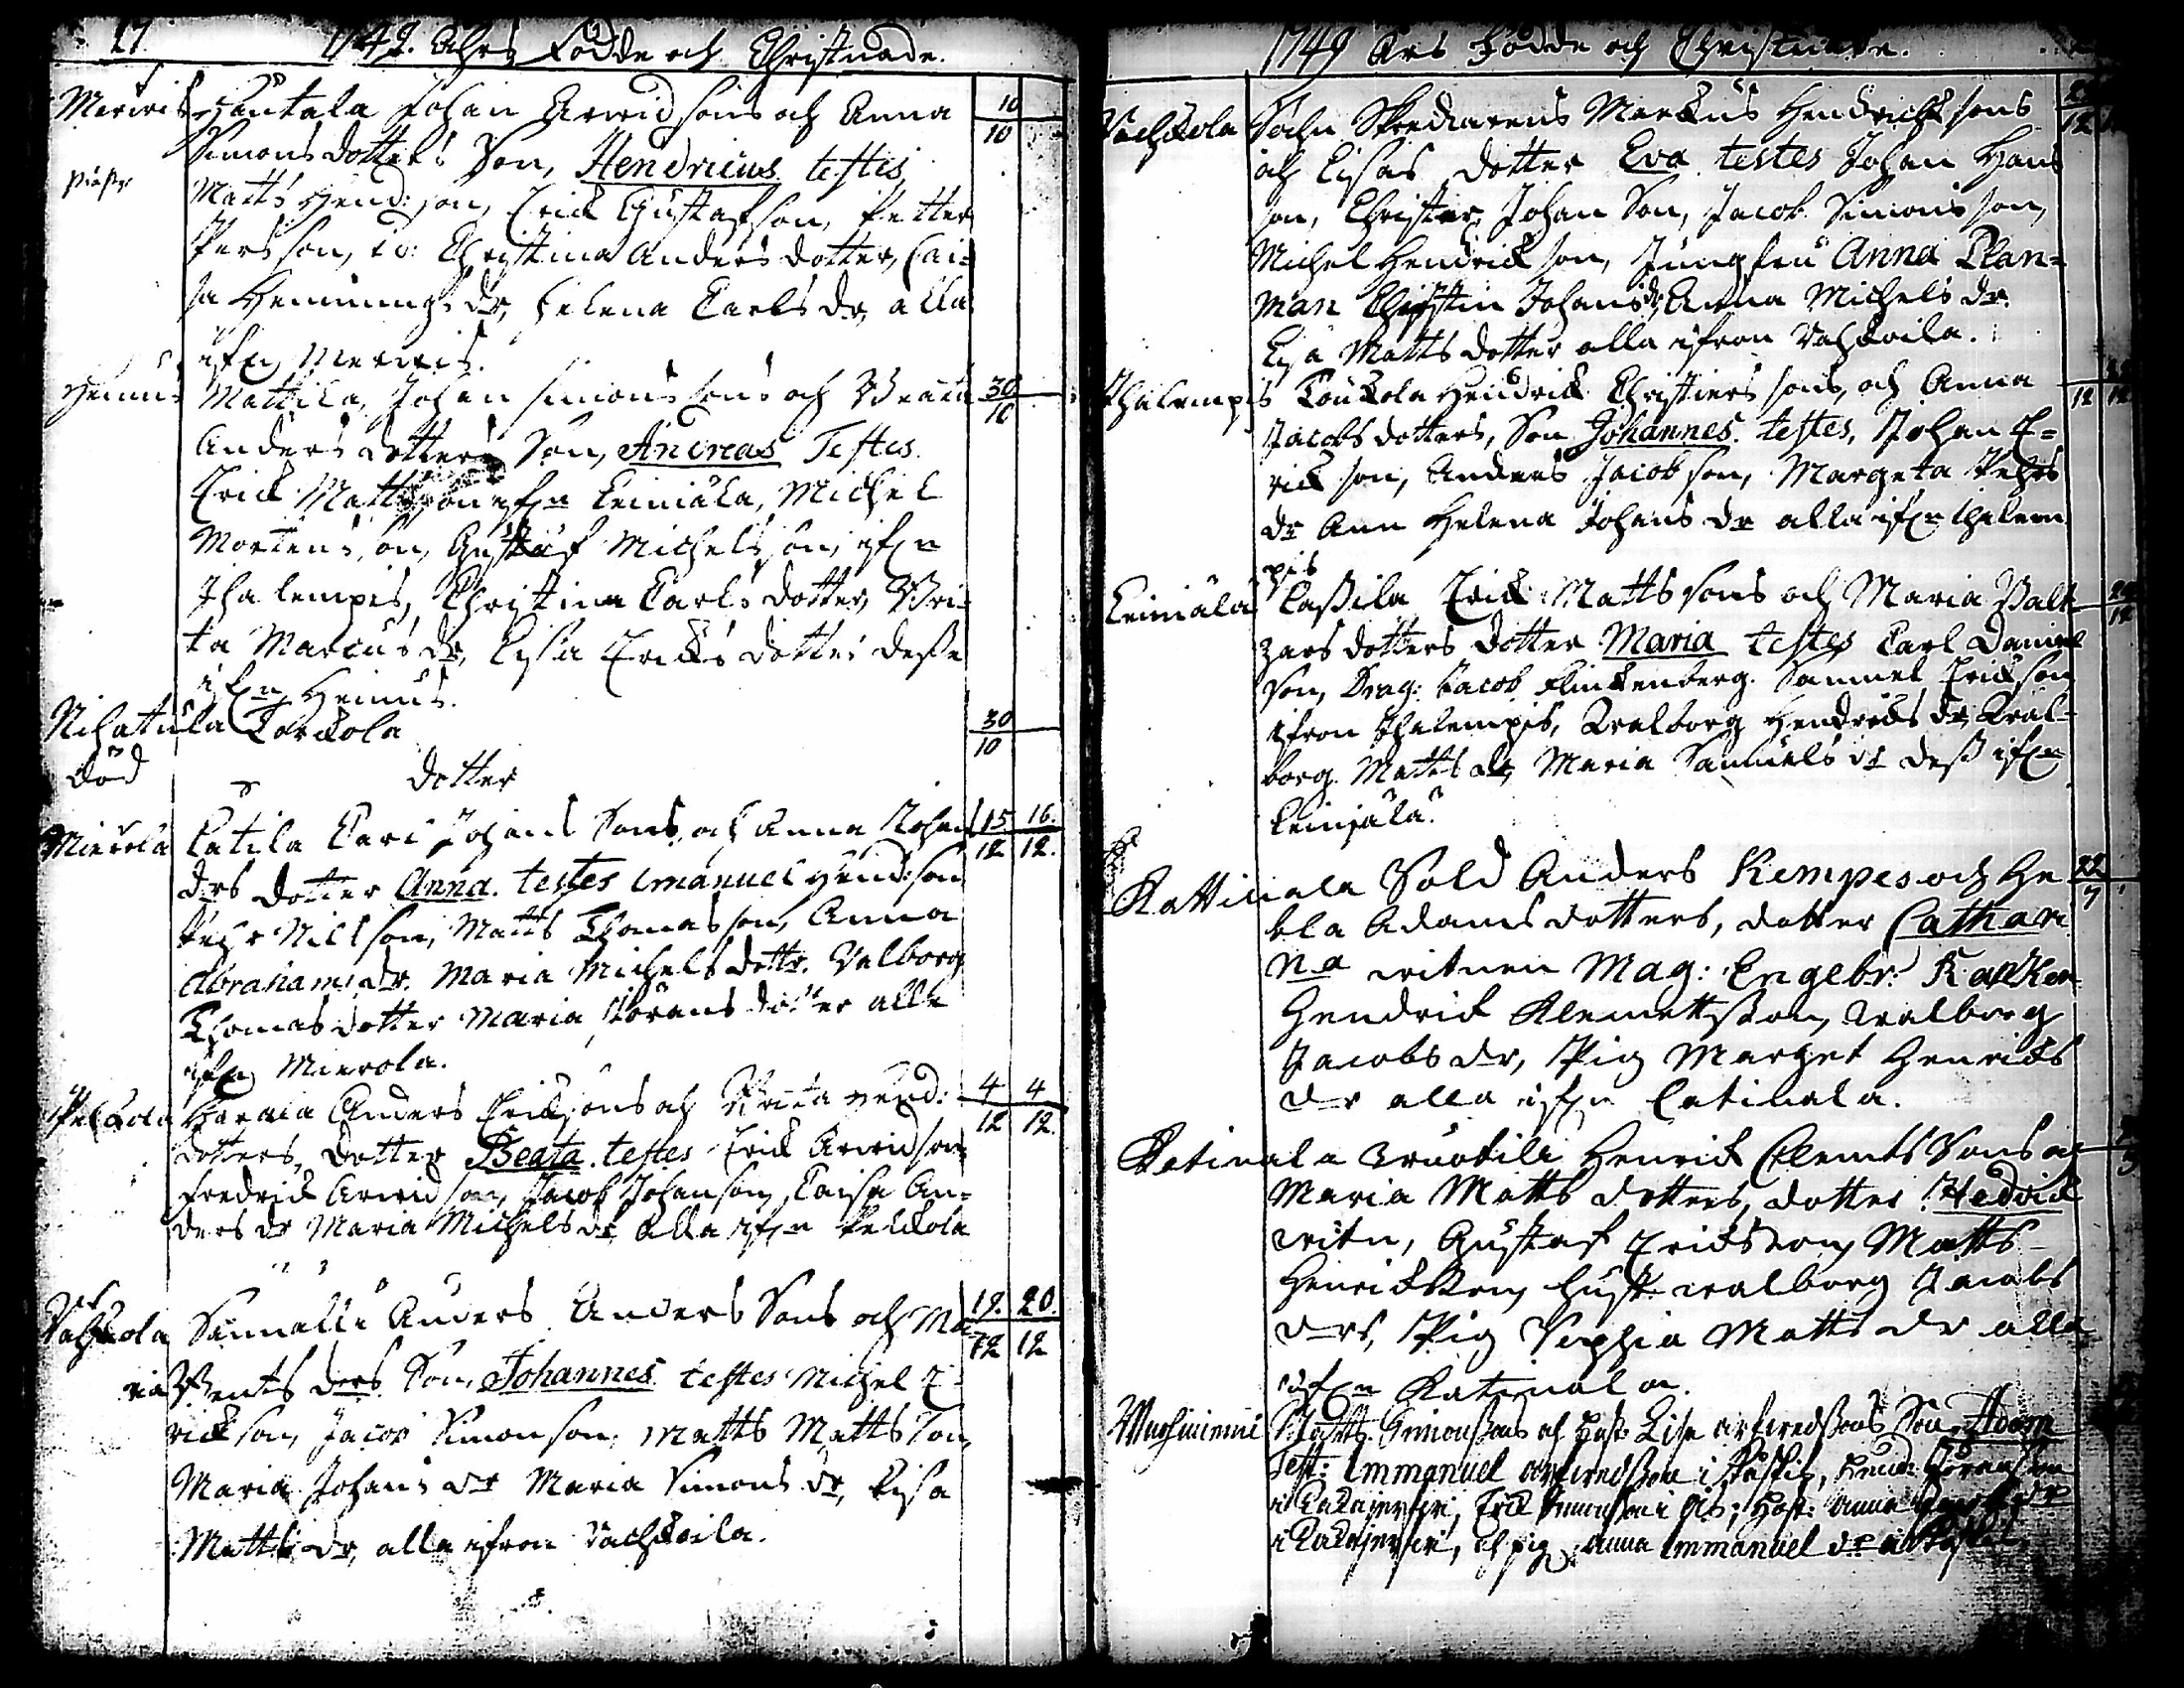 27
1749. Åhrs Födde och Christnade.
Merwis Hautala Johan Arwidsons och Anna 10
10
Simonsdotters Son, Hendricus testes
Matts Hend: son, Erick Gustafson, Petter
Persson, Christina Anders dotter, Cai-
sa Hennings dr, Helena Carls dr, alla
ifrn Merwis.
Heinus Mattila, Johan Simons sons och Beata 30
10
Anders dotters Son, Andreas Testes
Erick Mattsson ifrn Leiniälä, Michel
Mortens son, Gustaf Michelsson, ifrn
Ihalempis, Christina Carls dotter, Bri-
ta Marcus dr, Lisa Ericks dotter desse
ifrn Heinus.
Nihatula Torckola 30
10
död dotter
Mierola Catila Carl Johans Sons, och Anna Johans 15 16.
12 12.
drs dotter Anna. testes Emanuel Hend: son
Pehr Nilsson, Matts Thomasson, Anna
Abrahams dr. Maria Michels dottr. Valborg
Thomas dotter Maria Jörans dotter alla
ifrn Mierola.
Pelckola Harala Anders Ericksons och Beata Hend: 4 4
12 12.
dotters, dotter Beata. testes Erick Arwidson
Fredrick Arwidson, Jacob Johanson, Caisa An-
ders dr Maria Michels dr, alla ifrn Pelckola
Vachkola Anders Anders Sons och Ma- 19. 20.
12 12
ria Bents drs Son, Johannes testes Michel E-
rickson, Jacob Simonson, Matts Matts Son,
Maria Johans dr Maria Simons dr, Lisa
Matts dr, alla ifron Vachkoila.
1749 Års Födde och Christnade.
Vachkola Marckus Hendrickssons
12
och Lisas dotter Eva testes Johan Hans
son, Christer Johan Son, Jacob Simonsson,
Michel Hendrickson, Jungfru Anna Plan-
man Christin Johans dr, Anna Michels dr.
Lisa Matts dotter alla ifron Vachkoila.
Ihalempis Touckola Hendrick Christiers sons, och Anna
12 12
Jacobs dotters, Son Johannes. testes, Johan E-
rickson, Anders Jacobson, Margeta Pehrs
dr Ann Helena Johans dr alla ifrn Ihalem
pis
Leiniälä Cassila Erick Mattssons och Maria Balt
12
zars dotters dotter Maria testes Carl Daniel
Son, Drag: Jacob Flinckenberg. Samuel Erickson
ifron Ihalempis, Walborg Hendricks dr, Wal-
borg Matts dr, Maria Samuels dr dess ifrn
Leinjälä.
Kattinala Sold Anders Kempes och He 22
7
bla Adams dotters, dotter Cathari
na witnen Mag: Engelbr: Kalken
Hendrick Klemettsson, Walborg
Jacobs dr, Pig Marget Henricks
dr alla ifrn Catinala.
Katinala Henrick Clemets Sons och
Maria Matts dotters, dotter Hedvick
witn, Gustaf Ericksson, Matts
Henricksson, hust. Walborg Jacobs
drs, Pig Sophia Matts dr alla
ifrn Katinala.
Muchiniemi Matts Simonssons och Hust. Lisa Arfwedssons Son Adam
Test: Emmanuel Arfwedsson i Hend: Göransson
i Erick Simonsson i Hust: Anna
i och pig. Anna Emmanuel dr